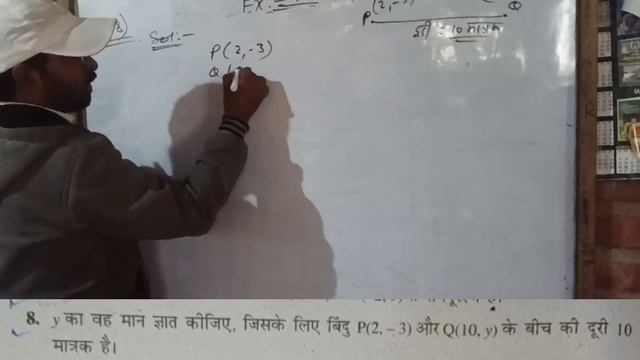 Ex:-
(8) Sol:-
P (2,-3) Q
दूरी = 10 मात्रक
P(2,-3)
Q (
8. y का वह मान ज्ञात कीजिए, जिसके लिए बिंदु P(2, – 3) और Q(10, y) के बीच की दूरी 10
मात्रक है।